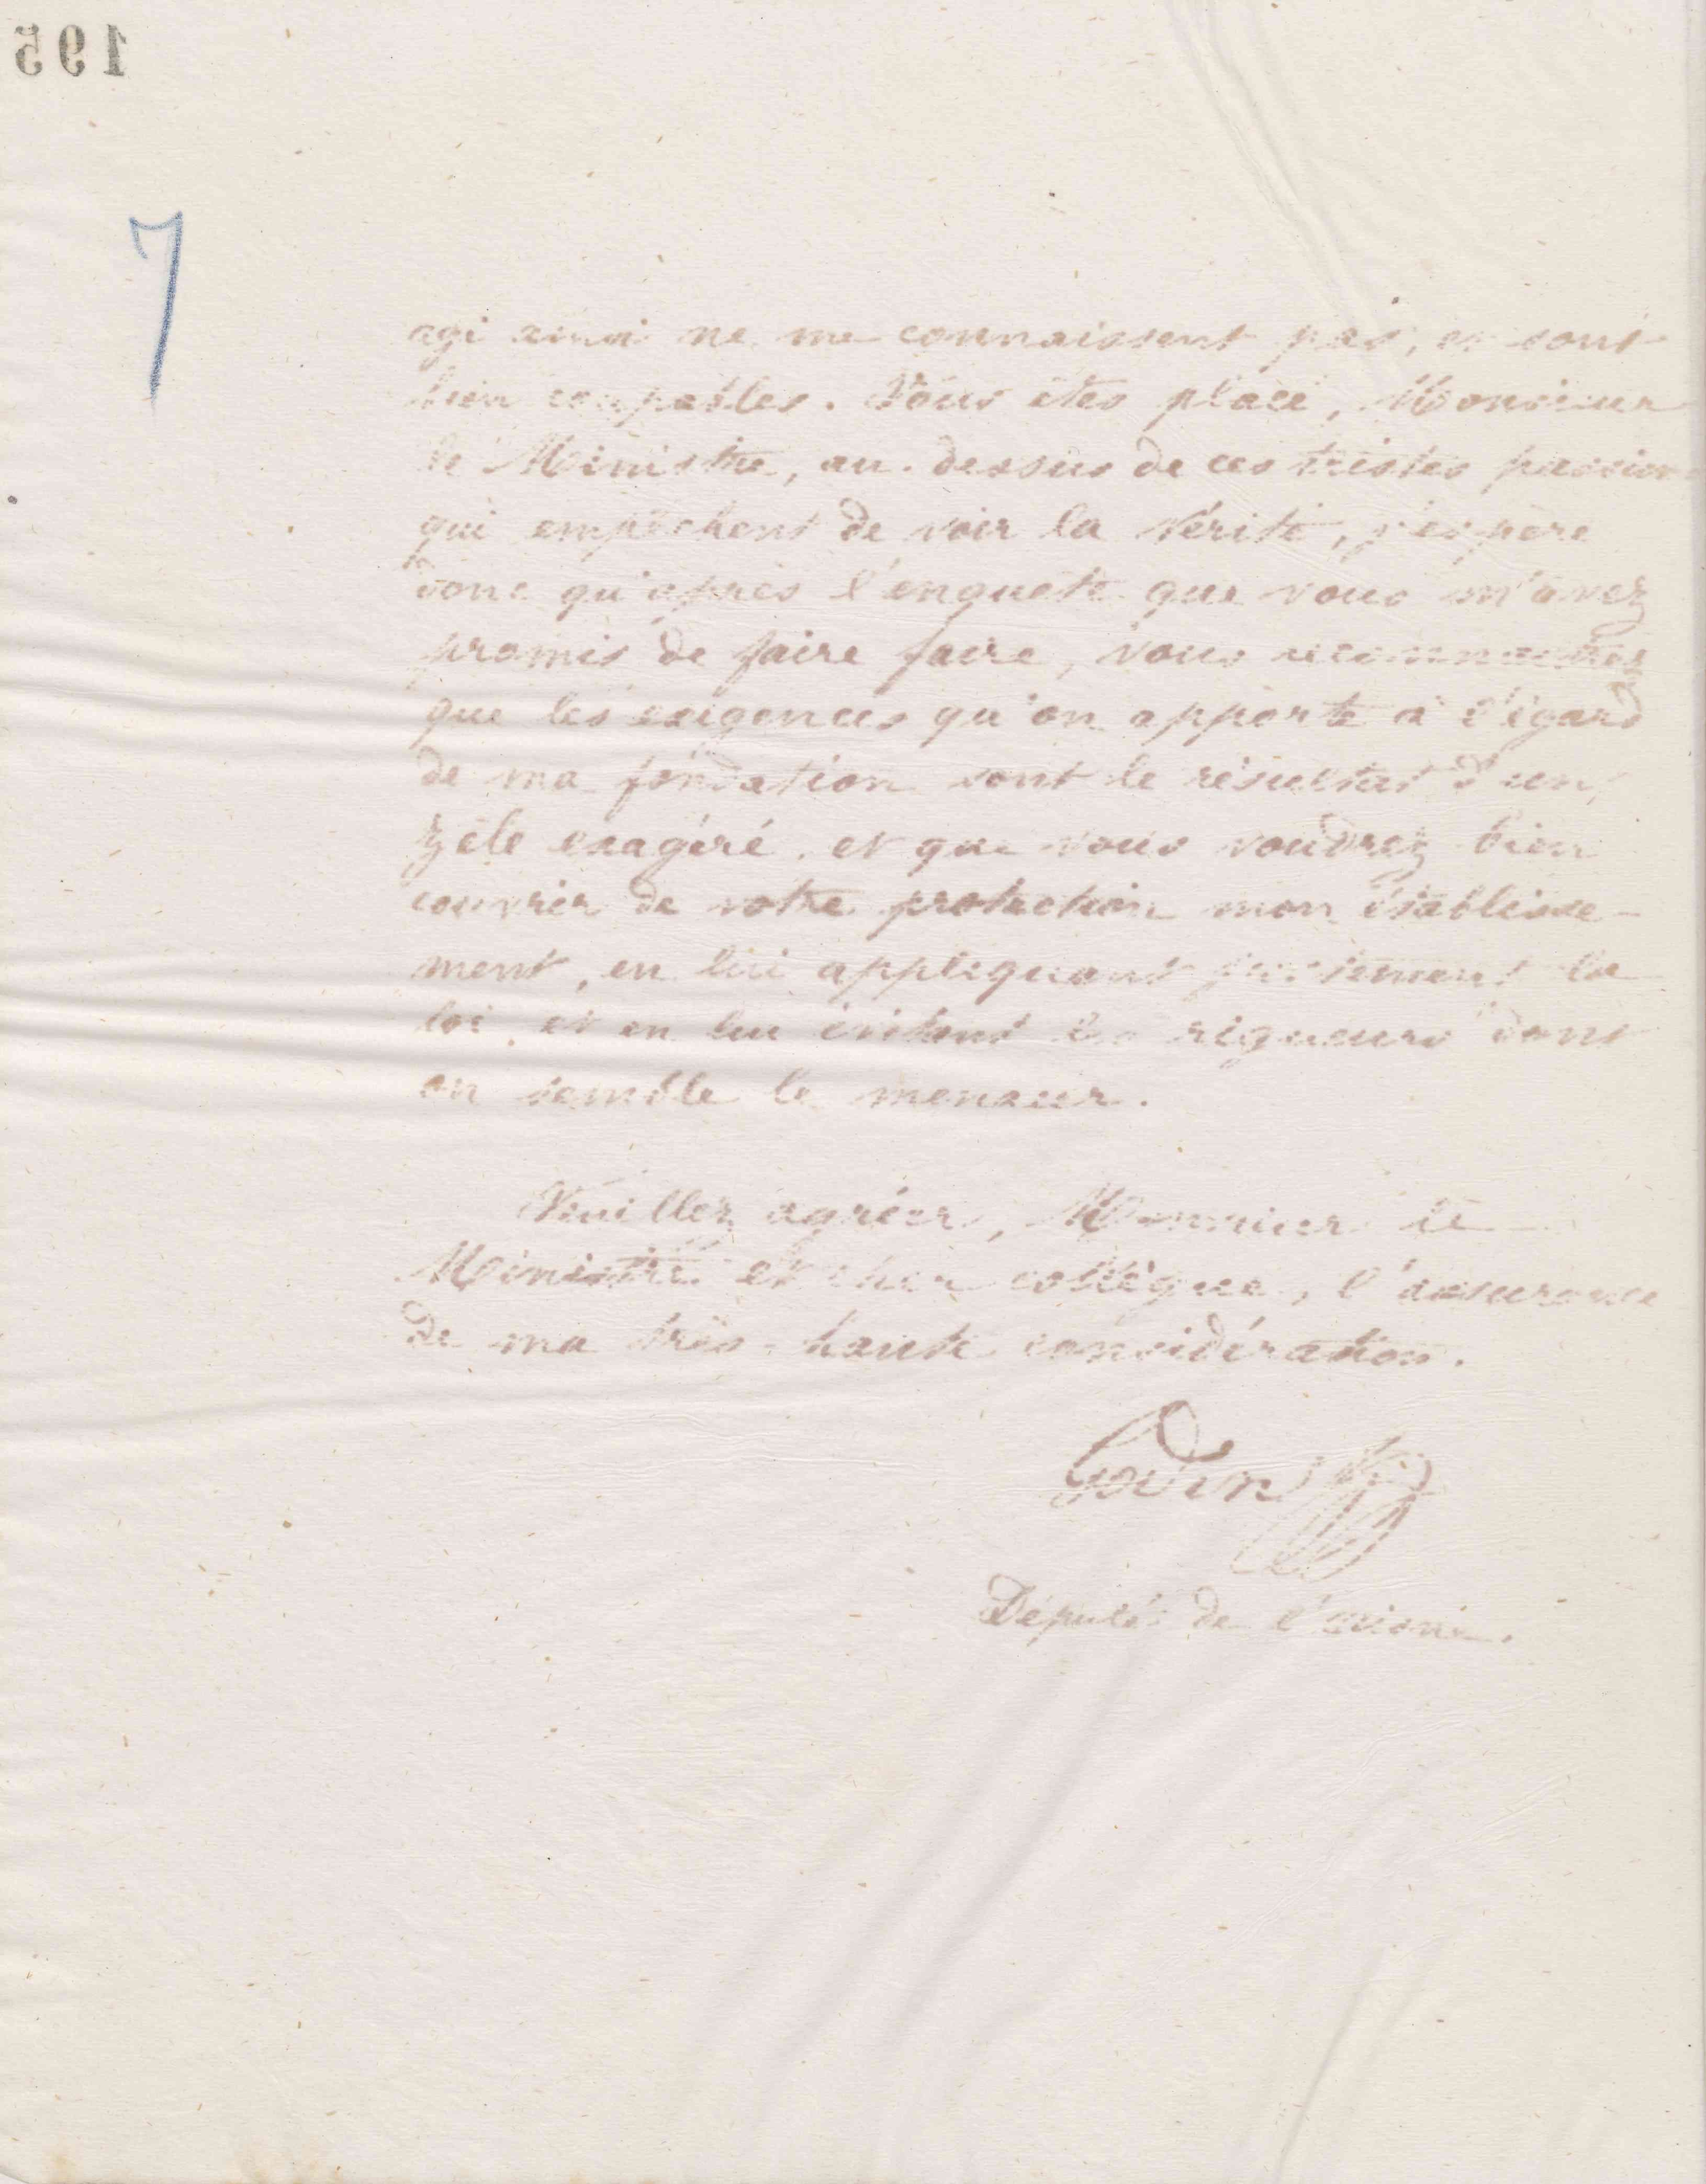 195
7
agi ainsi ne me connaissent pas, et sont
bien coupables. Vous êtes placé, Monsieur
le Ministre, au-dessus de ces tristes passions
qui empêchent de voir la vérité, j'espère
donc qu'après l'enquête que vous m'avez
promis de faire faire, vous reconnaîtrez
que les exigences qu'on apporte à l'égard
de ma fondation sont le résultat d'un
zèle exagéré, et que vous voudrez bien
couvrir de votre protection mon établisse-
ment, en lui appliquant justement la
loi, et en lui évitant les rigueurs dont
on semble le menacer.
Veuillez agréer, Monsieur le
Ministre et cher collègue, l'assurance
de ma très-haute considération.
Godin
Député de l'Aisne.